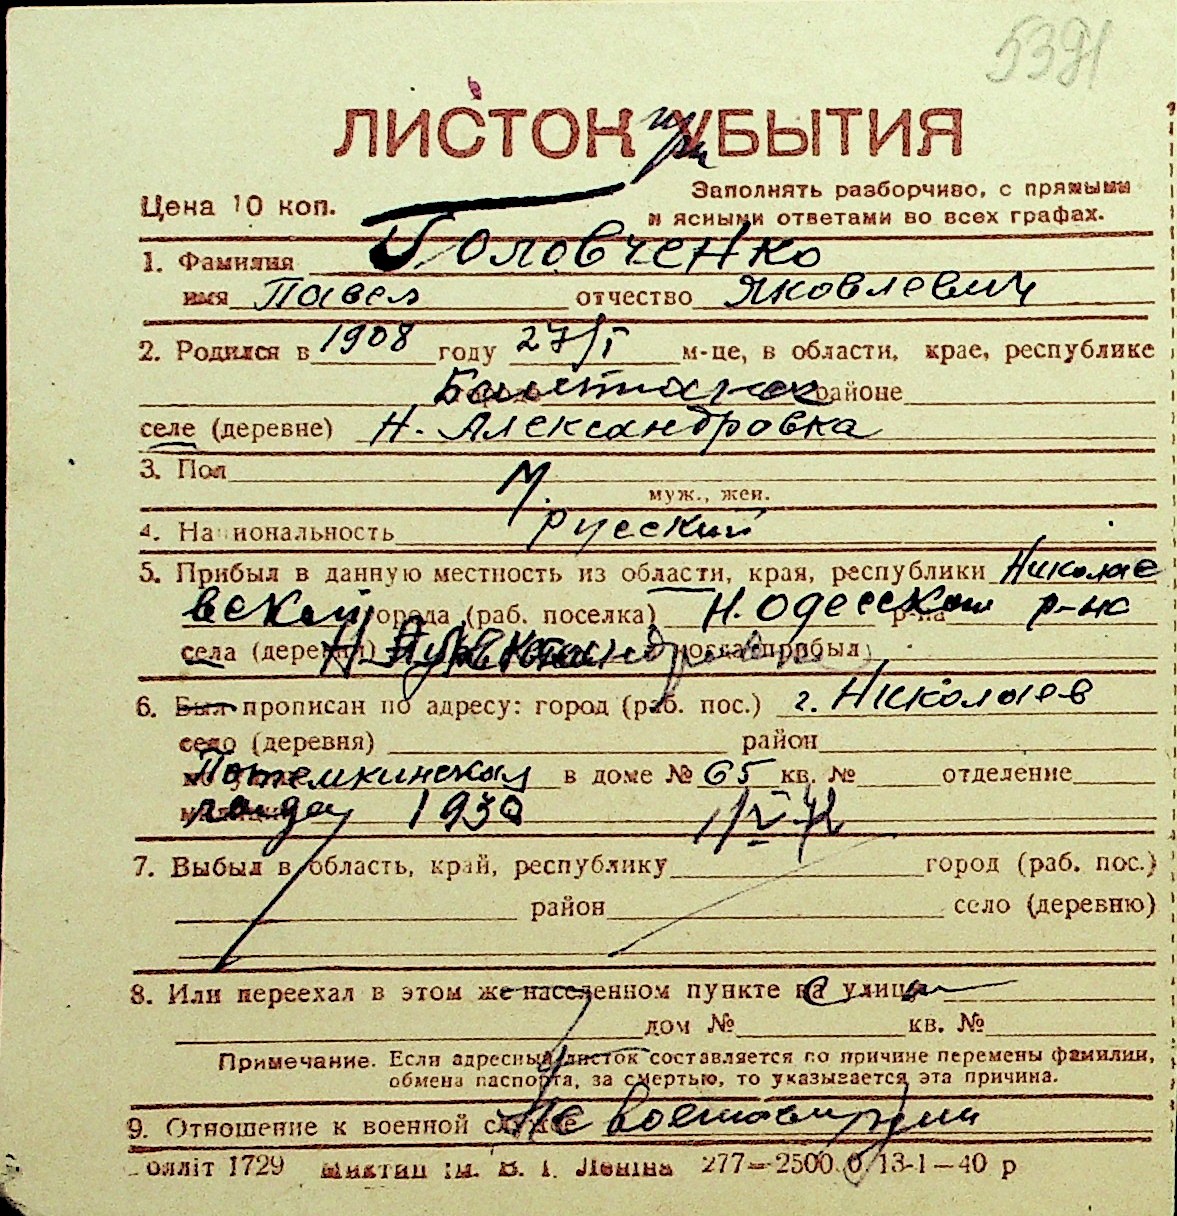 5391
ЛИСТОК при УБЫТИЯ
Цена 10 коп.
Заполнять разборчиво, с прямыми
и ясными ответами во всех графах.
1. Фамилия Головченко
имя Павел отчество Яковлевич
2. Родился в 1908 году 27/I м-це, в области, крае, республике
районе
селе (деревне) Н. Александровка
3. Пол М.
муж., жен.
4. Национальность русский
5. Прибыл в данную местность из области, края, республики Николае
вской города (раб. поселка) Н. Одесского р-на р-на
села (деревни) Н. Александровка прибыл)
6. Был прописан по адресу: город (раб. пос.) г. Николаев
село (деревня) район
Потемкинская в доме № 65 кв. № отделение
1930
7. Выбыл в область, край, республику город (раб. пос.)
район село (деревню)
8. Или переехал в этом же населенном пункте на улицу
дом № кв. №
Примечание. Если адресный листок составляется по причине перемены фамилии,
обмена паспорта, за смертью, то указывается эта причина.
9. Отношение к военной службе Не
Облліт 1729 ім. В. І. Леніна 277—2500.0 13-1—40 р